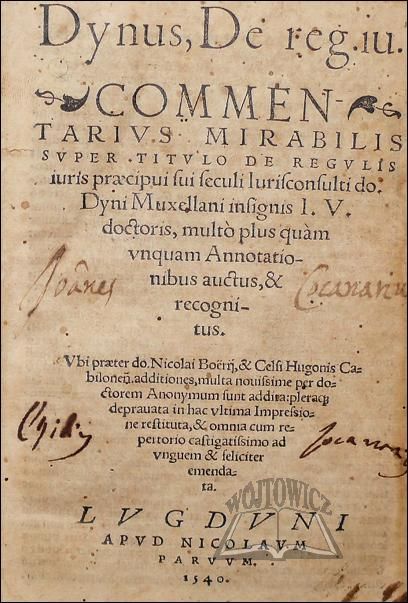 Dynus, De reg.iu.
COMMEN-
TARIVS MIRABILIS
SVPER TITVLO DE REGVLIS
iuris præcipui sui seculi Iurisconsulti do.
Dyni Muxellani insignis I. V.
doctoris, multò plus quàm
vnquam Annotatio-
nibus auctus, &
recogni-
tus.
Joānes
Vbi præter do. Nicolai Boërij, & Celsi Hugonis Ca-
bilonen̄. additiones, multa nouissime per do-
ctorem Anonymum sunt addita: pleraq;
deprauata in hac vltima Impressio-
ne restituta, & omnia cum re-
pertorio castigatissimo ad
vnguem & feliciter
emenda-
ta.
WOJTOWICZ
LVGDVNI
APVD NICOLAVM
PARVVM.
1540.